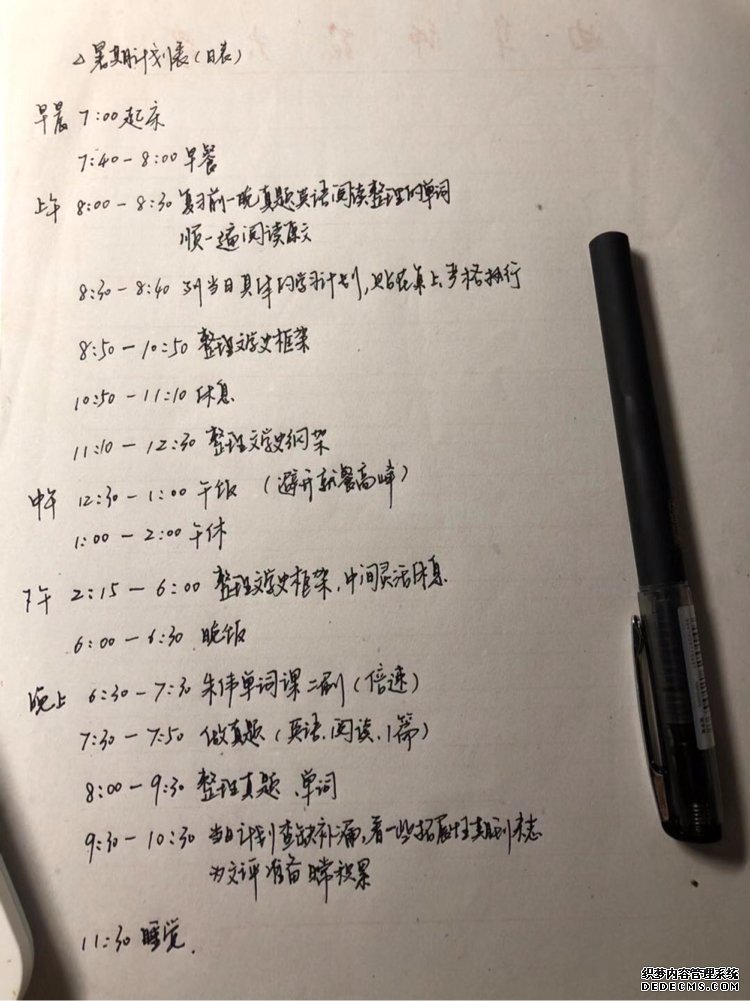 △暑期计划表(日表)
早晨 7:00起床
7:40-8:00早餐
上午 8:00-8:30 复习前一晚真题英语阅读整理的单词
顺一遍阅读原文
8:30-8:40 列当日具体的学习计划,贴在桌上严格执行
8:50-10:50 整理文学史框架
10:50-11:10 休息
11:10-12:30 整理文学史框架
中午 12:30-1:00 午饭 (避开就餐高峰)
1:00-2:00 午休
下午 2:15-6:00 整理文学史框架,中间灵活休息
6:00-6:30 晚饭
晚上 6:30-7:30 朱伟单词课二刷(倍速)
7:30-7:50 做真题(英语、阅读、1篇)
8:00-9:30 整理真题、单词
9:30-10:30 当日计划查缺补漏,看一些拓展性期刊杂志
为文评准备日常积累
11:30 睡觉.
织梦内容管理系统
DEDECMS.COM